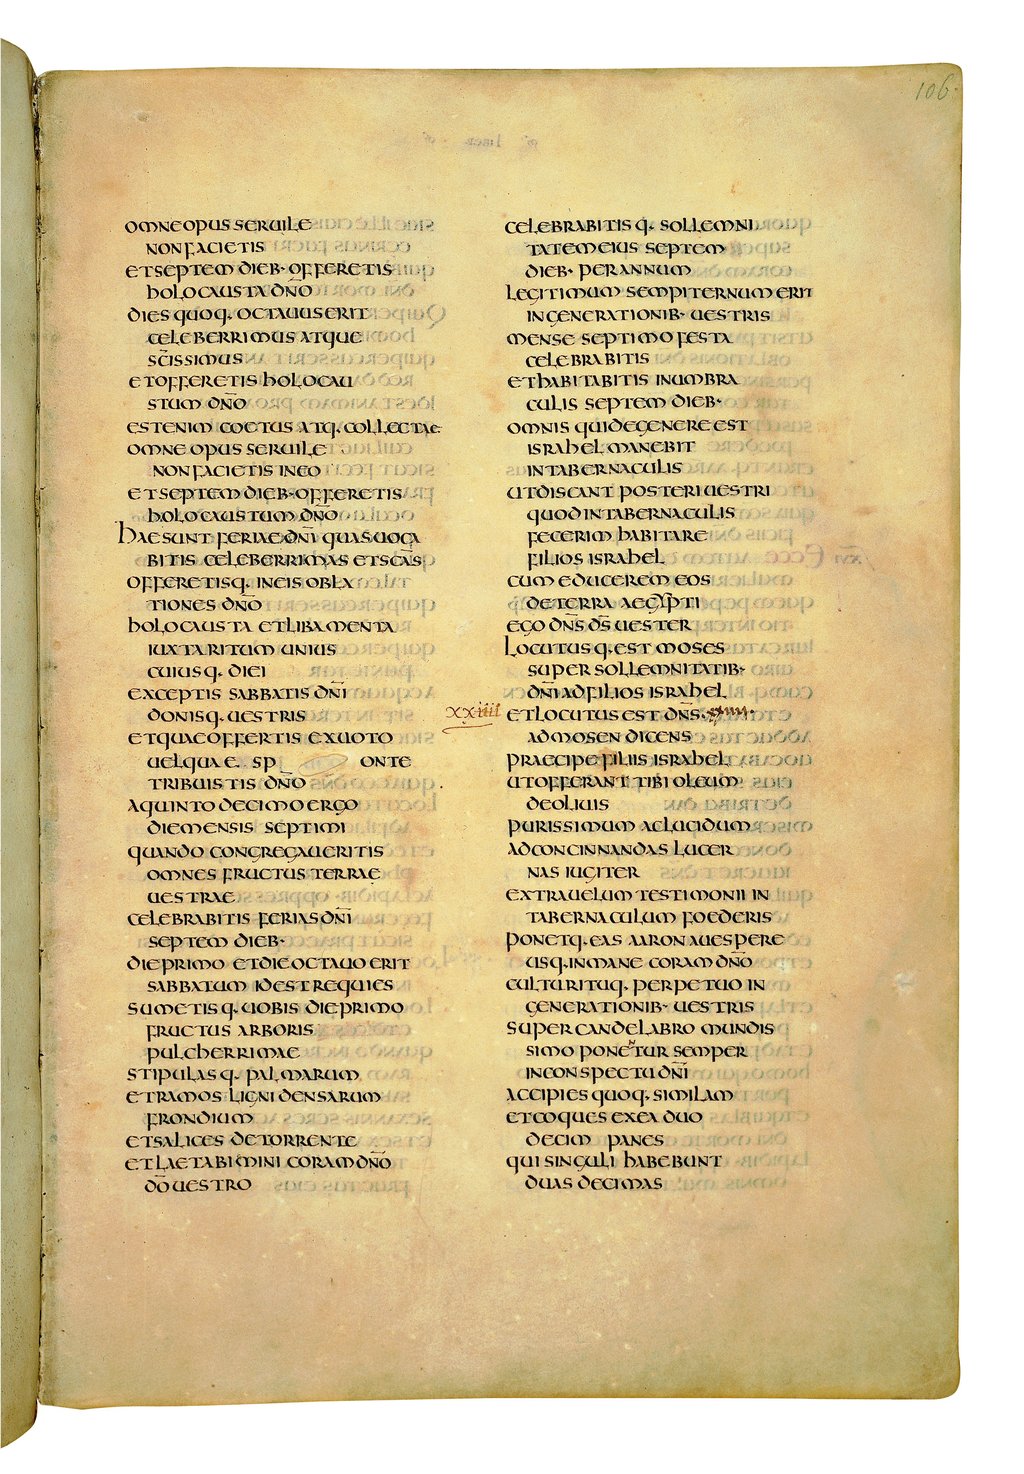 106.
OMNE OPUS SERUILE
NON FACIETIS
ET SEPTEM DIEB· OFFERETIS
HOLOCAUSTA DN̄O
DIES QUOQ. OCTAUUS ERIT
CELEBERRIMUS ATQUE
SC̄ISSIMUS
ET OFFERETIS HOLOCAU
STUM DN̄O
EST ENIM COETUS ATQ. COLLECTAE
OMNE OPUS SERUILE
NON FACIETIS IN EO
ET SEPTEM DIEB· OFFERETIS
HOLOCAUSTUM DN̄O
HAE SUNT FERIAE DN̄I QUAS UOCA
BITIS CELEBERRIMAS ET SC̄AS
OFFERETISQ. IN EIS OBLA
TIONES DN̄O
HOLOCAUSTA ET LIBAMENTA
IUXTA RITUM UNIUS
CUIUSQ. DIEI
EXCEPTIS SABBATIS DN̄I
DONISQ. UESTRIS
ET QUAE OFFERTIS EX UOTO
UEL QUAE SP ONTE
TRIBUISTIS DN̄O
A QUINTO DECIMO ERGO
DIE MENSIS SEPTIMI
QUANDO CONGREGAUERITIS
OMNES FRUCTUS TERRAE
UESTRAE
CELEBRABITIS FERIAS DN̄I
SEPTEM DIEB·
DIE PRIMO ET DIE OCTAUO ERIT
SABBATUM ID EST REQUIES
SUMETISQ. UOBIS DIE PRIMO
FRUCTUS ARBORIS
PULCHERRIMAE
STIPULASQ. PALMARUM
ET RAMOS LIGNI DENSARUM
FRONDIUM
ET SALICES DE TORRENTE
ET LAETABIMINI CORAM DN̄O
DŌ UESTRO
CELEBRABITISQ. SOLLEMNI
TATEM EIUS SEPTEM
DIEB· PER ANNUM
LEGITIMUM SEMPITERNUM ERIT
IN GENERATIONIB· UESTRIS
MENSE SEPTIMO FESTA
CELEBRABITIS
ET HABITABITIS IN UMBRA
CULIS SEPTEM DIEB·
OMNIS QUI DE GENERE EST
ISRAHEL MANEBIT
IN TABERNACULIS
UT DISCANT POSTERI UESTRI
QUOD IN TABERNACULIS
FECERIM HABITARE
FILIOS ISRAHEL
CUM EDUCEREM EOS
DE TERRA AEGYPTI
EGO DN̄S DS̄ UESTER
LOCUTUSQ. EST MOSES
SUPER SOLLEMNITATIB·
DN̄I AD FILIOS ISRAHEL
xxiiii ET LOCUTUS EST DN̄S.
AD MOSEN DICENS
PRAECIPE FILIIS ISRAHEL
UT OFFERANT TIBI OLEUM
DE OLIUIS
PURISSIMUM AC LUCIDUM
AD CONCINNANDAS LUCER
NAS IUGITER
EXTRA UELUM TESTIMONII IN
TABERNACULUM FOEDERIS
PONETQ. EAS AARON A UESPERE
USQ. IN MANE CORAM DN̄O
CULTU RITUQ. PERPETUO IN
GENERATIONIB· UESTRIS
SUPER CANDELABRO MUNDIS
SIMO PONETUR SEMPER
IN CONSPECTU DN̄I
ACCIPIES QUOQ. SIMILAM
ET COQUES EX EA DUO
DECIM PANES
QUI SINGULI HABEBUNT
DUAS DECIMAS